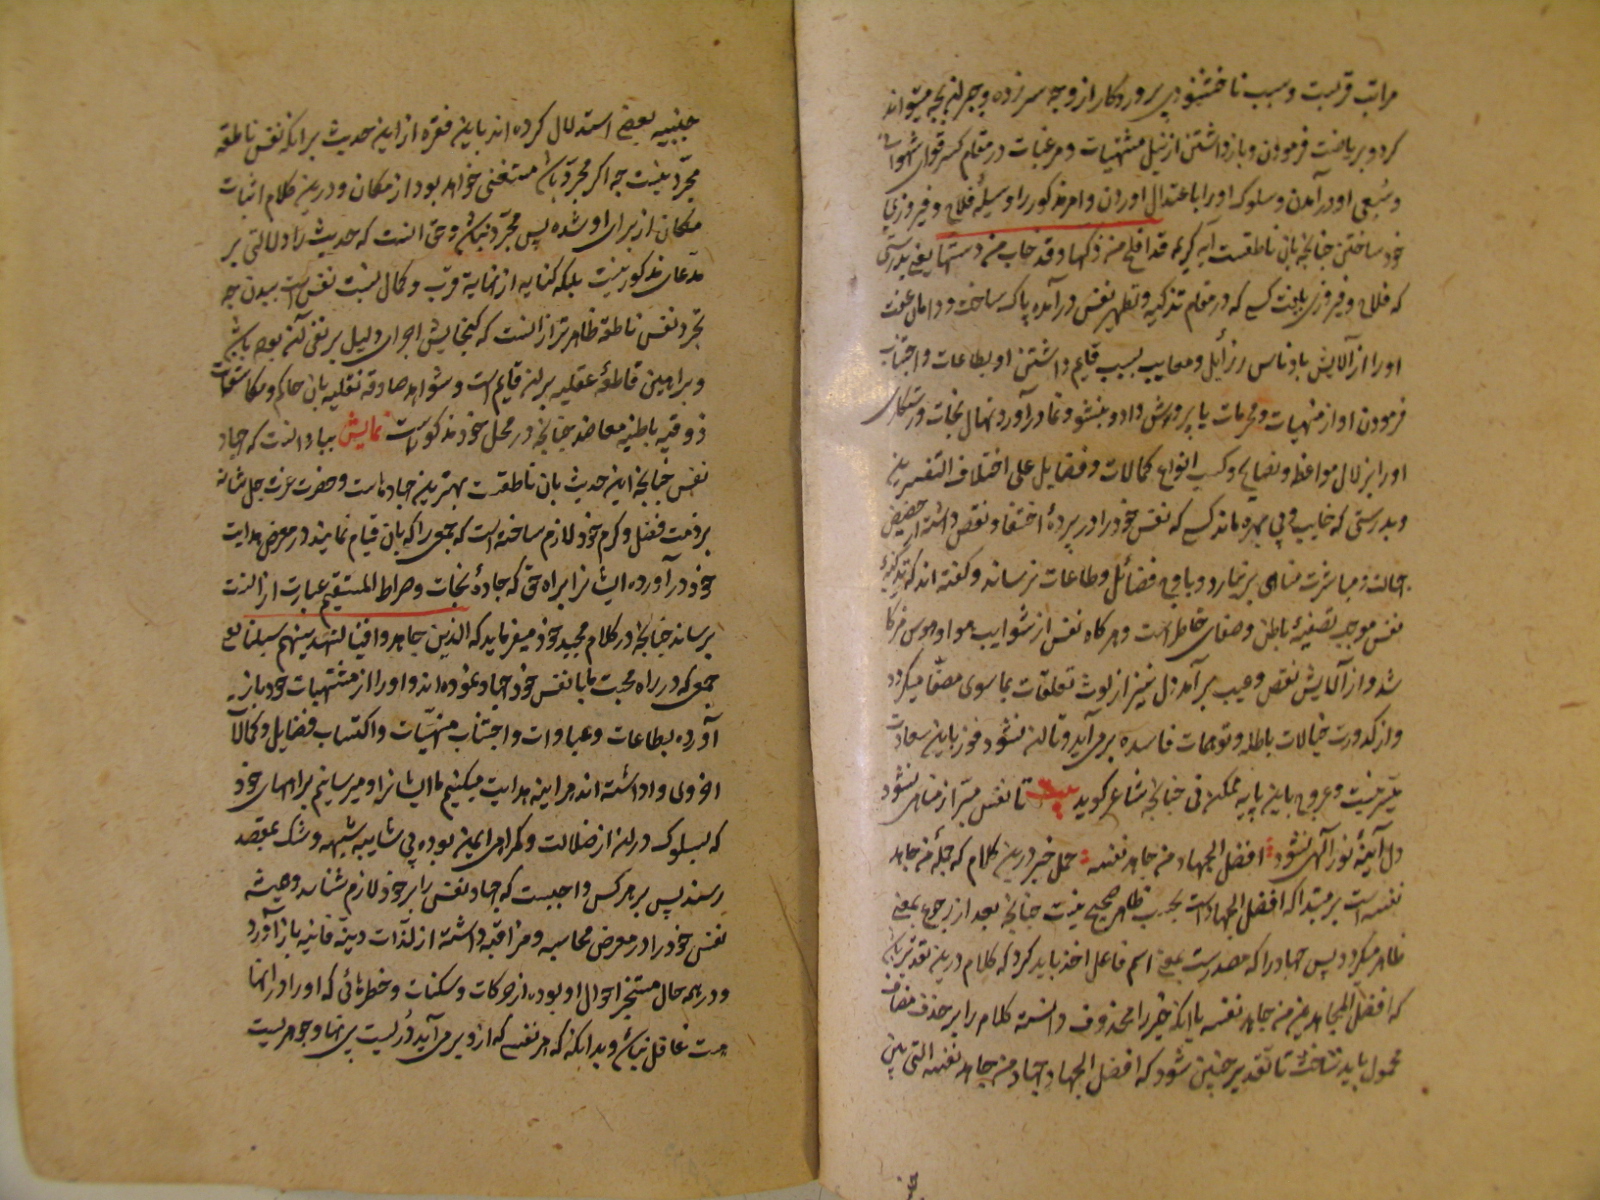 مراتب قربت و سبب ناخشنودی پروردکار از وجه سر زده و جبر آن بچه میتواند
کرد و بریاضت فرمودن و باز داشتن از نیل مشتهیات و مرغبات در مقام کسر قوای شهوانی
و سبعی او در آمدن و سلوک او را باعتدال اوردن و امر مذکور را وسیلهٔ فلاح و فیروزی
خود ساختن چنانچه بان ناطقست آیه کریمه قد افلح من زکیها و قد خاب من دسیها یعنی بدرستی
که فلاح و فیروزی یافت کسی که در مقام تذکیه و تطهیر نفس در آمده پاک ساخت و دامان عفت
او را از آلایش بادناس رزایل و معایب بسبب قایم داشتن او بطاعات و اجتناب
فرمودن او از منهیات و محرمات یا پرورش داد و بنشو و نما در آورد نهال نجات و رستکاری
او را بزلال مواعظ و نصایح و کسب انواع کمالات و فضایل علی اختلاف التفسیرین
و بدرستی که خایب و بی بهره ماند کسی که نفس خود را در پردهٔ اختفا و نقص داشته از حضیض
جهالت و مباشرت مناهی بر نیارد و باوج فضائل و طاعات نرسانه و کفته اند که تزکیهٔ
نفس موجب تصفیهٔ باطن و صفای خاطر است و هر کاه نفس از شوایب هوا و هوس مزکا
شد و از آلایش نقص و عیب بر آمد دل نیز از لوث تعلقات بما سوی مصفا میکردد
و از کدورت خیالات باطله و توهمات فاسده بر می آید و تا این نشود فوز باین سعادت
میسر نیست و عروج باین پایه ممکن نی چنانچه شاعر کوید بیت تا نفس مبرا ز مناهی نشود
دل آینهٔ نور آلهی نشود افضل الجهاد من جاهد نفسه حمل خبر درین کلام که جملهٔ من جاهد
نفسه است بر مبتدا که افضل الجهاد است بحسب ظاهر صحیح نیست چنانچه بعد از رجوع بمعنی
ظاهر میکردد پس جهاد را که مصدر ست بمعنی اسم فاعل اخذ باید کرد که کلام درین تقدیر باشد
که افضل المجاهدین من جاهد نفسه یا انکه خبر را محذوف دانسته کلام را بر حذف مضاف
محمول باید ساخت تا تقدیر چنین شود که افضل الجهاد جهاد من جاهد نفسه التی بین
جنبیه بعضی استدلال کرده اند باین فقره از این حدیث بر انکه نفس ناطقه
مجرد نیست چه اکر مجرد باشد مستغنی خواهد بود از مکان و درین کلام اثبات
مکان از برای او شده پس مجرد نباشد و حق انست که حدیث را دلالتی بر
مدعای مذکور نیست بلکه کنایه از نهایت قرب و کمال نسبت نفس است ببدن چه
تجرد نفس ناطقه ظاهرتر از انست که کنجایش اجرای دلیل بر نفی آن بوده باشد
و براهین قاطعهٔ عقلیه بر این قایم است و شواهد صادقه نقلیه بان حاکم و مکاشفات
ذوقیه باطنیه معاضد چنانچه در محل خود مذکور است نمایش بباید دانست که جهاد
نفس چنانچه این حدیث بان ناطقست بهترین جهادهاست و حضرت عزت جل شانه
بر ذمت فضل و کرم خود لازم ساخته است که جمعی را که بان قیام نمایند در معرض هدایت
خود در آورده ایشانرا براه حق که جادهٔ نجات و صراط المستقیم عبارت از انست
برساند چنانچه در کلام مجید خود میفرماید که الذین جاهدوا فینا لنهدینهم سبلنا یعنی
جمعی که در راه محبت ما با نفس خود جهاد نموده اند و او را از مشتهیات خود باز
آورده بطاعات و عبادات و اجتناب منهیات و اکتساب فضایل و کمالات
اخروی واداشته اند هر اینه هدایت میکنیم ما ایشانرا و میرسانیم براههای خود
که بسلوک در ان از ضلالت و کمراهی ایمن بوده بی شایبه شبهه و شک بمقصد
رسند پس بر هر کس واجبست که جهاد نفس را بر خود لازم شناسد و همیشه
نفس خود را در معرض محاسبه و مراقبه داشته از لذات دنیهٔ فانیه باز آورد
و در همه حال مستخبر احوال او بوده از حرکات و سکنات و خطرهائی که او را در انها
هست غافل نباشد و بداند که هر نفسی که از و بر می آید دریست بی بها و جوهریست